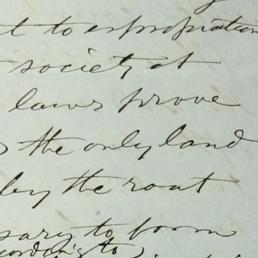 t to expropriation
society at
laws prove
the only land
by the root
sary to form
according to